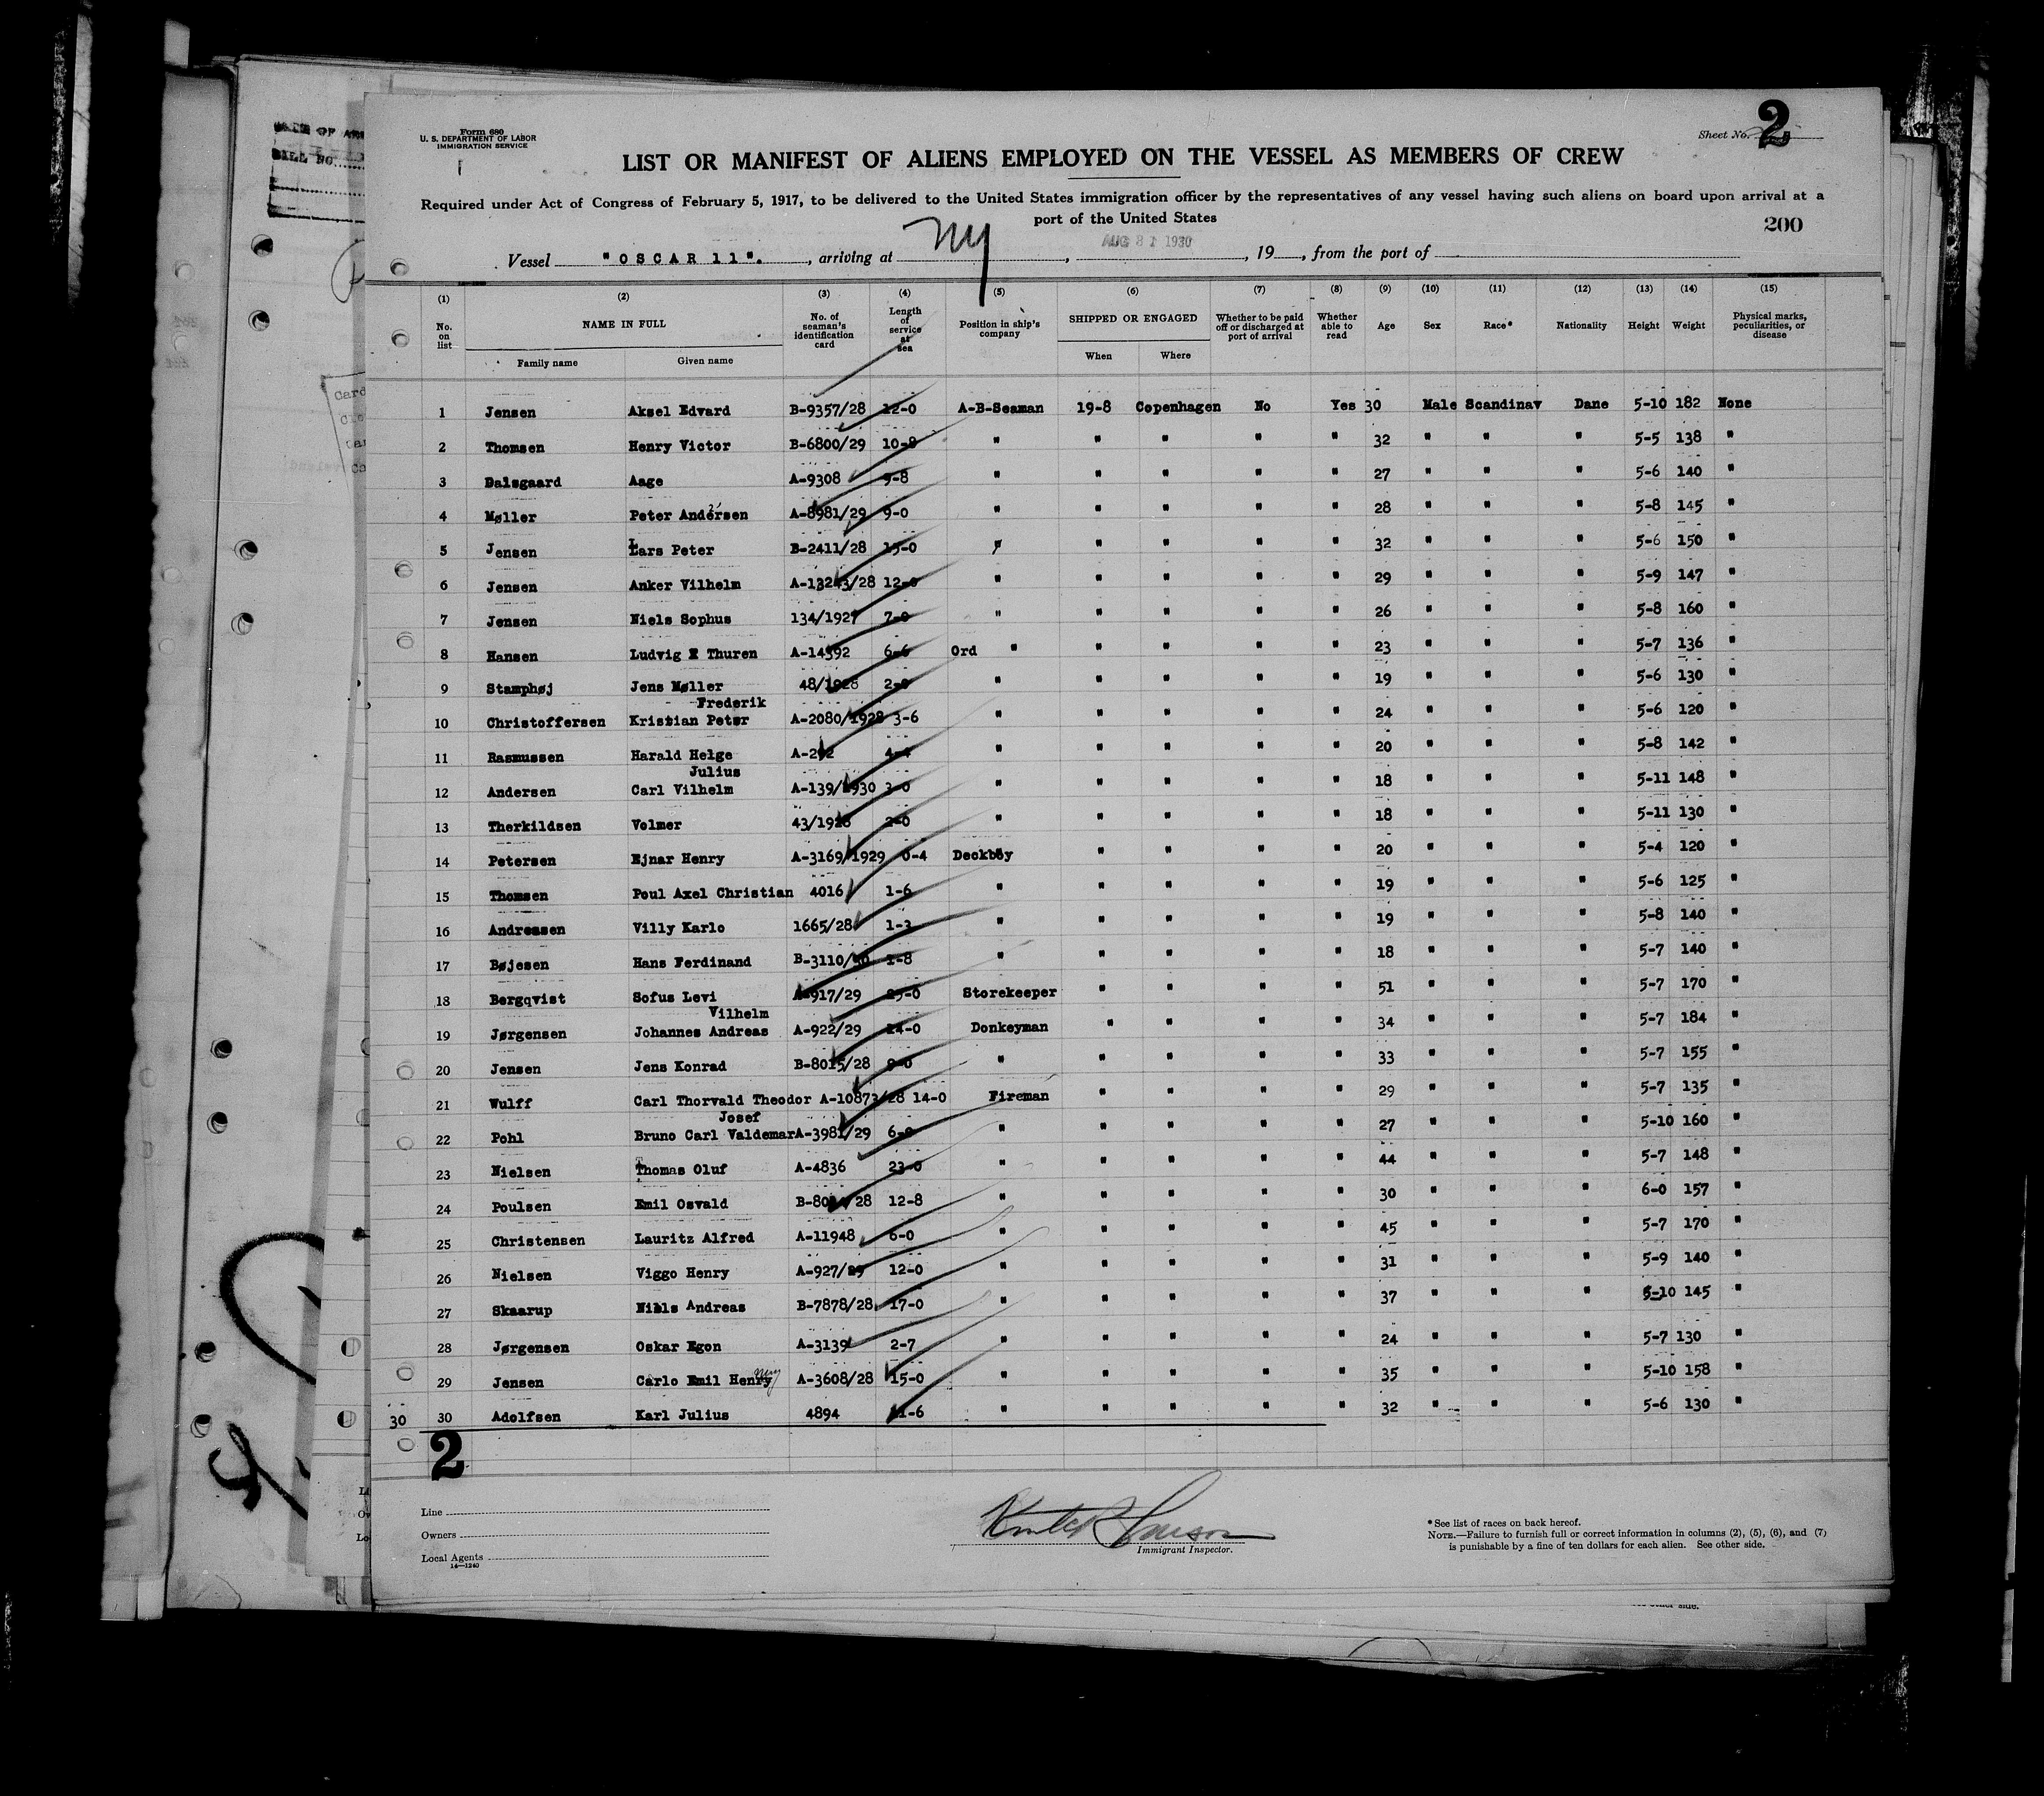 Form 680
U. S. DEPARTMENT OF LABOR
IMMIGRATION SERVICE
Sheet No. 2
LIST OR MANIFEST OF ALIENS EMPLOYED ON THE VESSEL AS MEMBERS OF CREW
Required under Act of Congress of February 5, 1917, to be delivered to the United States immigration officer by the representatives of any vessel having such aliens on board upon arrival at a
port of the United States
200
Vessel "OSCAR 11"., arriving at NY, AUG 31 1930, 19__, from the port of
(1) (2) (3) (4) (5) (6) (7) (8) (9) (10) (11) (12) (13) (14) (15)
No. on list NAME IN FULL No. of seaman's identification card Length of service at sea Position in ship's company SHIPPED OR ENGAGED Whether to be paid off or discharged at port of arrival Whether able to read Age Sex Race* Nationality Height Weight Physical marks, peculiarities, or disease
Family name Given name When Where
1 Jensen Aksel Edvard B-9357/28 12-0 A-B-Seaman 19-8 Copenhagen No Yes 30 Male Scandinav Dane 5-10 182 None
2 Thomsen Henry Victor B-6800/29 10-8 " " " " " 32 " " " 5-5 138 "
3 Dalsgaard Aage A-9308 9-8 " " " " " 27 " " " 5-6 140 "
4 Møller Peter Andersen A-8981/29 9-0 " " " " " 28 " " " 5-8 145 "
5 Jensen Lars Peter B-2411/28 15-0 " " " " " 32 " " " 5-6 150 "
6 Jensen Anker Vilhelm A-13243/28 12-0 " " " " " 29 " " " 5-9 147 "
7 Jensen Niels Sophus 134/1927 7-0 " " " " " 26 " " " 5-8 160 "
8 Hansen Ludvig E Thuren A-14592 6-6 Ord " " " " " 23 " " " 5-7 136 "
9 Stamphøj Jens Møller 48/1928 2-0 " " " " " 19 " " " 5-6 130 "
Frederik
10 Christoffersen Kristian Peter A-2080/1928 3-6 " " " " " 24 " " " 5-6 120 "
11 Rasmussen Harald Helge A-292 4-4 " " " " " 20 " " " 5-8 142 "
Julius
12 Andersen Carl Vilhelm A-139/1930 3-0 " " " " " 18 " " " 5-11 148 "
13 Therkildsen Volmer 43/1928 2-0 " " " " " 18 " " " 5-11 130 "
14 Petersen Ejnar Henry A-3169/1929 0-4 Deckboy " " " " 20 " " " 5-4 120 "
15 Thomsen Poul Axel Christian 4016 1-6 " " " " " 19 " " " 5-6 125 "
16 Andreasen Villy Karlo 1665/28 1-3 " " " " " 19 " " " 5-8 140 "
17 Bøjesen Hans Ferdinand B-3110/30 1-8 " " " " " 18 " " " 5-7 140 "
18 Bergqvist Sofus Levi A-917/29 25-0 Storekeeper " " " " 51 " " " 5-7 170 "
Vilhelm
19 Jørgensen Johannes Andreas A-922/29 14-0 Donkeyman " " " " 34 " " " 5-7 184 "
20 Jensen Jens Konrad B-8015/28 9-0 " " " " " 33 " " " 5-7 155 "
21 Wulff Carl Thorvald Theodor A-10873/28 14-0 Fireman " " " " 29 " " " 5-7 135 "
Josef
22 Pohl Bruno Carl Valdemar A-3981/29 6-0 " " " " " 27 " " " 5-10 160 "
23 Nielsen Thomas Oluf A-4836 23-0 " " " " " 44 " " " 5-7 148 "
24 Poulsen Emil Osvald 12-8 " " " " " 30 " " " 6-0 157 "
25 Christensen Lauritz Alfred A-11948 6-0 " " " " " 45 " " " 5-7 170 "
26 Nielsen Viggo Henry A-927/29 12-0 " " " " " 31 " " " 5-9 140 "
27 Skaarup Niels Andreas B-7878/28 17-0 " " " " " 37 " " " 5-10 145 "
28 Jørgensen Oskar Egon A-3139 2-7 " " " " " 24 " " " 5-7 130 "
29 Jensen Carlo Emil Henry A-3608/28 15-0 " " " " " 35 " " " 5-10 158 "
30 30 Adolfsen Karl Julius 4894 11-6 " " " " " 32 " " " 5-6 130 "
2
Line
Owners
Local Agents
14—1240
Immigrant Inspector.
* See list of races on back hereof.
NOTE.—Failure to furnish full or correct information in columns (2), (5), (6), and (7)
is punishable by a fine of ten dollars for each alien. See other side.